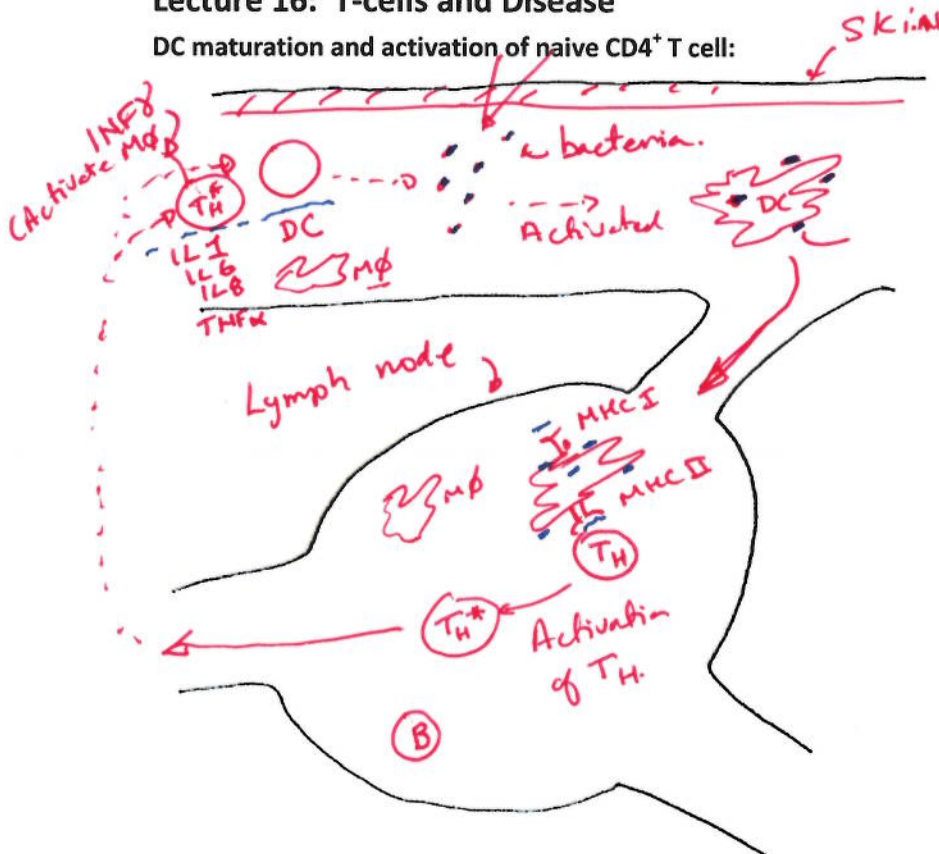 Lecture 16: T-cells and Disease
DC maturation and activation of naive CD4⁺ T cell:
Skin
INFγ
(Activate MØ)
bacteria.
TH*
DC
Activated
DC
IL1
IL6
IL8
TNFα
MØ
Lymph node
MHC I
MØ
MHC II
TH
TH*
Activation
of TH.
B